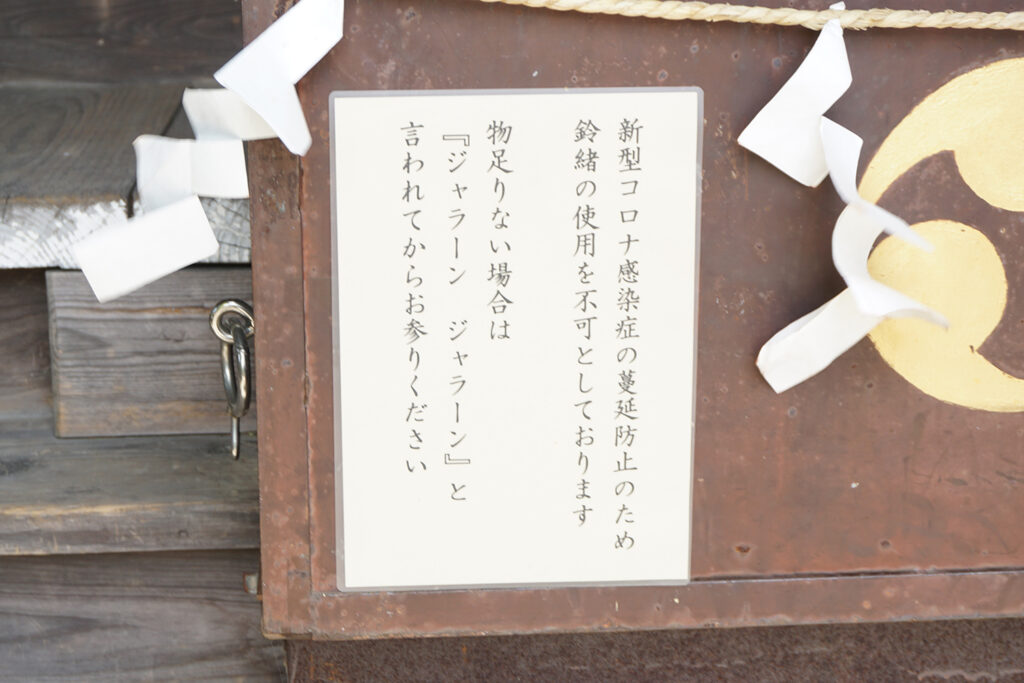 新型コロナ感染症の蔓延防止のため
鈴緒の使用を不可としております
物足りない場合は
『ジャラーン　ジャラーン』と
言われてからお参りください